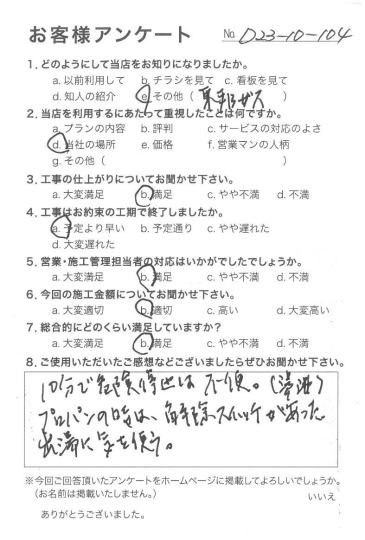 お客様アンケート No. D23-10-104
1. どのようにして当店をお知りになりましたか。
a. 以前利用して b. チラシを見て c. 看板を見て
d. 知人の紹介 e. その他（東邦ガス）
2. 当店を利用するにあたって重視したことは何ですか。
a. プランの内容 b. 評判 c. サービスの対応のよさ
d. 当社の場所 e. 価格 f. 営業マンの人柄
g. その他（ ）
3. 工事の仕上がりについてお聞かせ下さい。
a. 大変満足 b. 満足 c. やや不満 d. 不満
4. 工事はお約束の工期で終了しましたか。
a. 予定より早い b. 予定通り c. やや遅れた
d. 大変遅れた
5. 営業・施工管理担当者の対応はいかがでしたでしょうか。
a. 大変満足 b. 満足 c. やや不満 d. 不満
6. 今回の施工金額についてお聞かせ下さい。
a. 大変適切 b. 適切 c. 高い d. 大変高い
7. 総合的にどのくらい満足していますか？
a. 大変満足 b. 満足 c. やや不満 d. 不満
8. ご使用いただいたご感想などございましたらぜひお聞かせ下さい。
10分で自動停止は不便。
プロパンの時は、解除スイッチがあった
出湯に気を使う。
※今回ご回答頂いたアンケートをホームページに掲載してよろしいでしょうか。
（お名前は掲載いたしません。） いいえ
ありがとうございました。